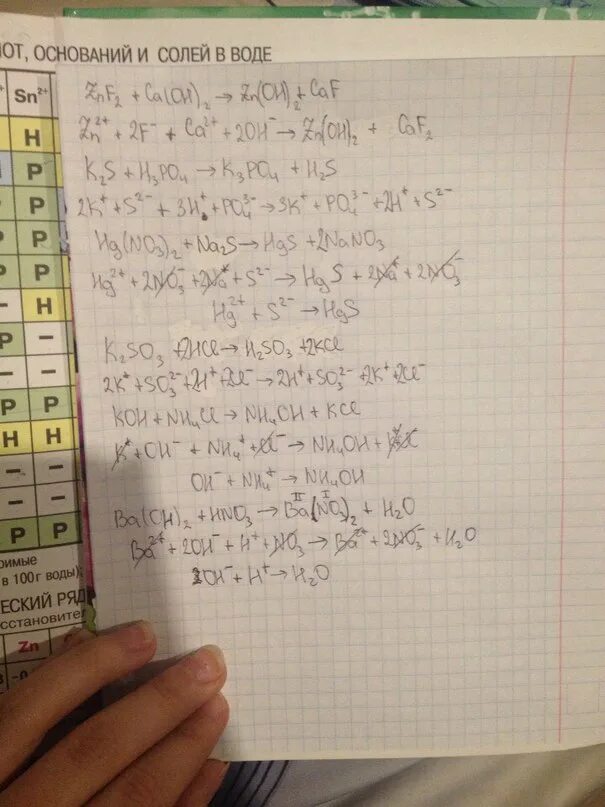 ЛОТ, ОСНОВАНИЙ И СОЛЕЙ В ВОДЕ
Sn²⁺
Н
Р
Р
Р
Р
– Н
Р –
Р
Р Р
Н Н
– –
– –
– –
Р Р
римые
в 100 г воды);
ЕСКИЙ РЯД
сстановител
Zn
ZnF₂ + Ca(OH)₂ → Zn(OH)₂ + CaF
Zn²⁺ + 2F⁻ + Ca²⁺ + 2OH⁻ → Zn(OH)₂ + CaF₂
K₂S + H₃PO₄ → K₃PO₄ + H₂S
2K⁺ + S²⁻ + 3H⁺ + PO₄³⁻ → 3K⁺ + PO₄³⁻ + 2H⁺ + S²⁻
Hg(NO₃)₂ + Na₂S → HgS + 2NaNO₃
Hg²⁺ + 2NO₃⁻ + 2Na⁺ + S²⁻ → HgS + 2Na⁺ + 2NO₃⁻
Hg²⁺ + S²⁻ → HgS
K₂SO₃ + 2HCl → H₂SO₃ + 2KCl
2K⁺ + SO₃²⁻ + 2H⁺ + 2Cl⁻ → 2H⁺ + SO₃²⁻ + 2K⁺ + 2Cl⁻
KOH + NH₄Cl → NH₄OH + KCl
K⁺ + OH⁻ + NH₄⁺ + Cl⁻ → NH₄OH +
OH⁻ + NH₄⁺ → NH₄OH
Ba(OH)₂ + HNO₃ → Ba(NO₃)₂ + H₂O
II I
Ba²⁺ + 2OH⁻ + H⁺ + NO₃⁻ → Ba²⁺ + 2NO₃⁻ + H₂O
2OH⁻ + H⁺ → H₂O